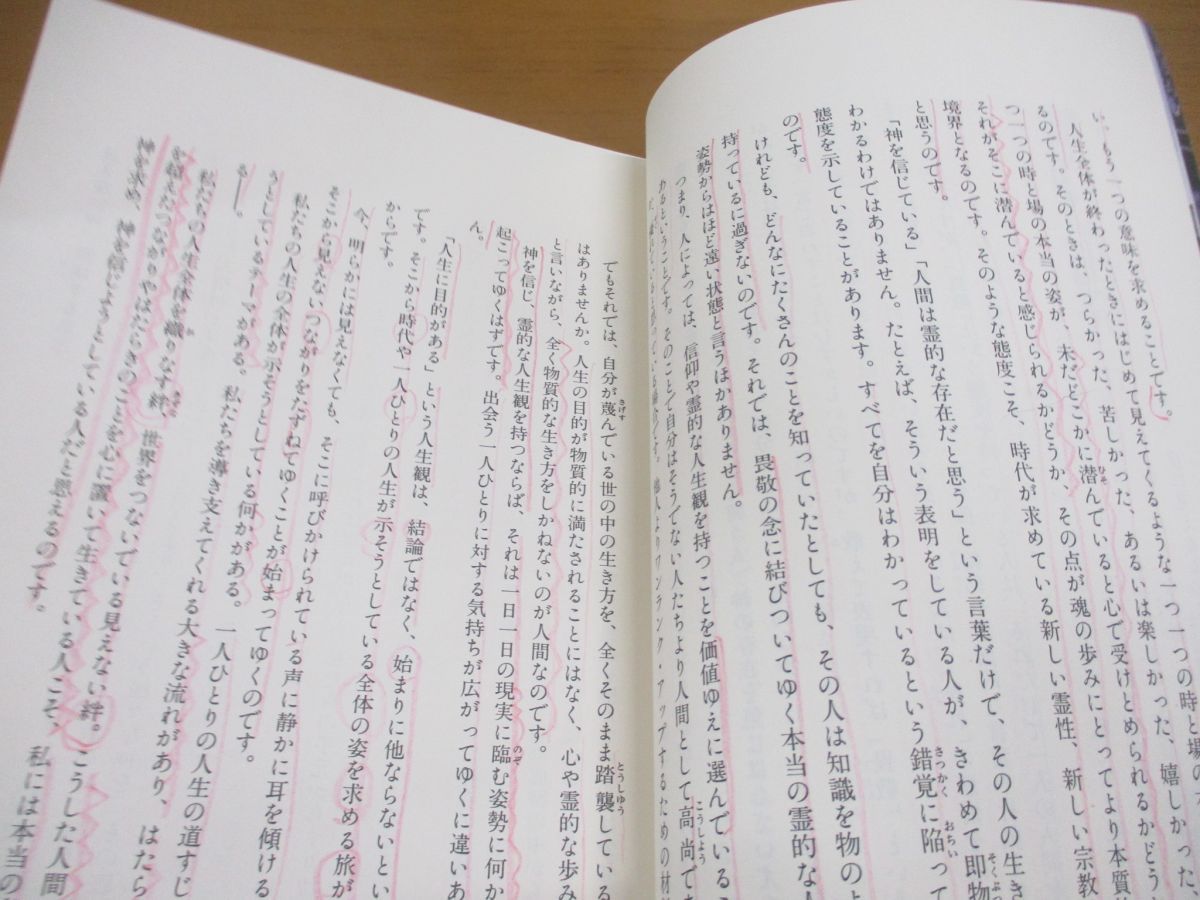 い、もう一つの意味を求めることです。
人生全体が終わったときにはじめて見えてくるような一つ一つの時と場の
るのです。そのときは、つらかった、苦しかった、あるいは楽しかった、嬉しかった、
つ一つの時と場の本当の姿が、未だどこかに潜んでいると心で受けとめられるかどうか
それがそこに潜んでいると感じられるかどうか、その点が魂の歩みにとってより本質的
境界となるのです。そのような態度こそ、時代が求めている新しい霊性、新しい宗教
と思うのです。
「神を信じている」「人間は霊的な存在だと思う」という言葉だけで、その人の生き
わかるわけではありません。たとえば、そういう表明をしている人が、きわめて即物
態度を示していることがあります。すべてを自分はわかっているという錯覚に陥って
のです。
けれども、どんなにたくさんのことを知っていたとしても、その人は知識を物のよ
持っているに過ぎないのです。それでは、畏敬の念に結びついてゆく本当の霊的な人
姿勢からはほど遠い状態と言うほかありません。
つまり、人によっては、信仰や霊的な人生観を持つことを価値ゆえに選んでいるこ
あるということです。そのことで自分はそうでない人たちより人間として高尚であ
人よりワンランク・アップするための材
でもそれでは、自分が蔑んでいる世の中の生き方を、全くそのまま踏襲している
はありませんか。人生の目的が物質的に満たされることにはなく、心や霊的な歩み
と言いながら、全く物質的な生き方をしかねないのが人間なのです。
神を信じ、霊的な人生観を持つならば、それは一日一日の現実に臨む姿勢に何か
起こってゆくはずです。出会う一人ひとりに対する気持ちが広がってゆくに違いあ
ん。
「人生に目的がある」という人生観は、結論ではなく、始まりに他ならないとい
です。そこから時代や一人ひとりの人生が示そうとしている全体の姿を求める旅が
からです。
今、明らかには見えなくても、そこに呼びかけられている声に静かに耳を傾ける
そこから見えないつながりをたずねてゆくことが始まってゆくのです。
私たちの人生の全体が示そうとしている何かがある。一人ひとりの人生の道すじ
うとしているテーマがある。私たちを導き支えてくれる大きな流れがあり、はたら
る――。
私たちの人生全体を織りなす絆、世界をつないでいる見えない絆。こうした人間
を超えたつながりやはたらきのことを心に置いて生きている人こそ、私には本当の
神を求め、神を信じようとしている人だと思えるのです。